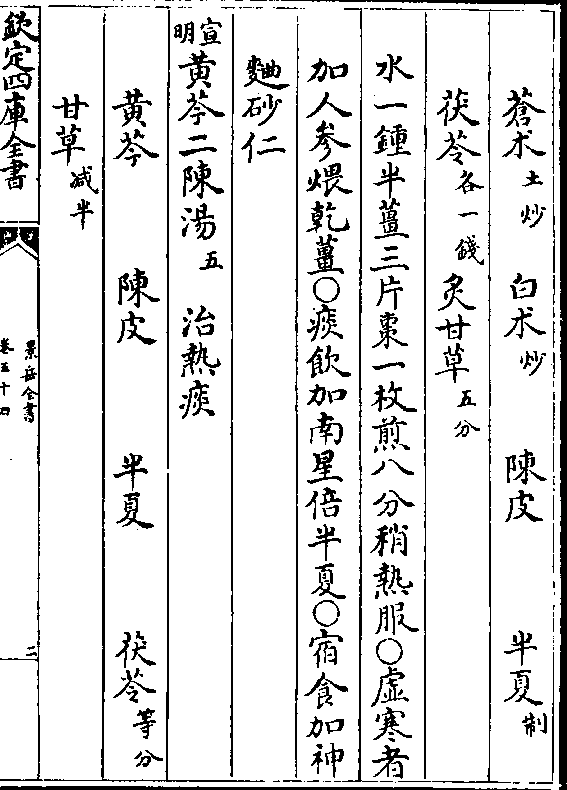 蒼朮土炒 白朮炒 陳皮 半夏制
茯苓各一錢 炙甘草五分
水一鍾半薑三片棗一枚煎八分稍熱服○虛寒者
加人參煨乾薑○痰飲加南星倍半夏○宿食加神
麯砂仁
宣明黃芩二陳湯五 治熱痰
黃芩 陳皮 半夏 茯苓等分
甘草減半
欽定四庫全書
景岳全書
卷五十四
三